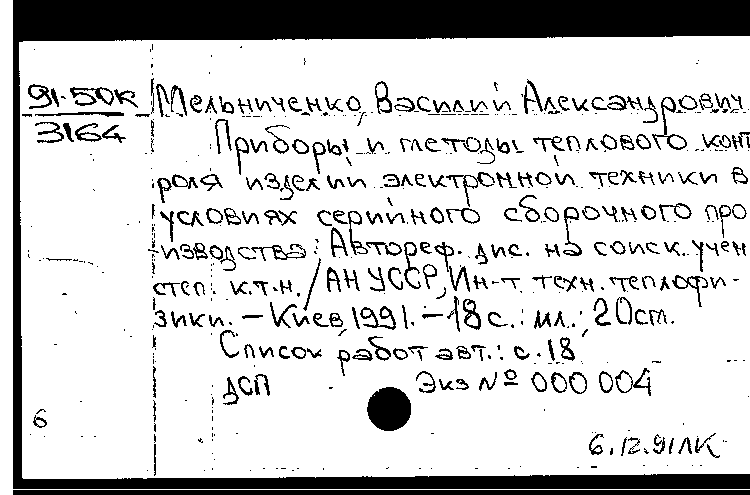 91-50К
3164
Мельниченко, Василий Александрович.
Приборы и методы теплового конт
роля изделий электронной техники в
условиях серийного сборочного про
изводства: Автореф. дис. на соиск. учен
степ. к.т.н. / АН УССР, Ин-т техн. теплофи-
зики. – Киев, 1991. – 18 с.: ил.; 20 ст.
Список работ авт.: с. 18
ДСП Экз № 000 004
6
6.12.91 ЛК